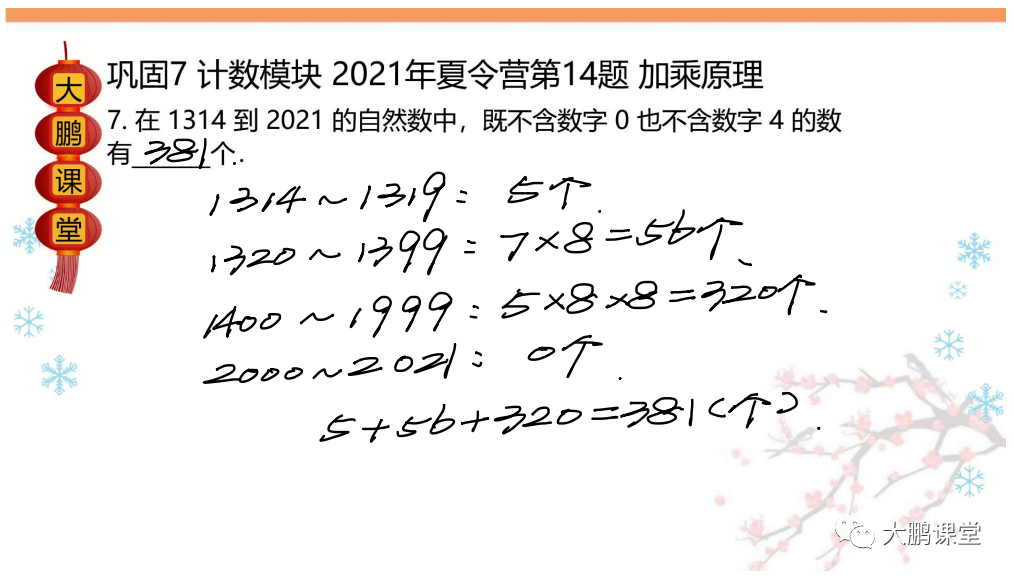 大鹏课堂
巩固7 计数模块 2021年夏令营第14题 加乘原理
7. 在 1314 到 2021 的自然数中，既不含数字 0 也不含数字 4 的数
有 381 个..
1314 ~ 1319 : 5个.
1320 ~ 1399 : 7×8=56个、
1400 ~ 1999 : 5×8×8=320个.
2000~2021 : 0个.
5+56+320=381(个).
大鹏课堂